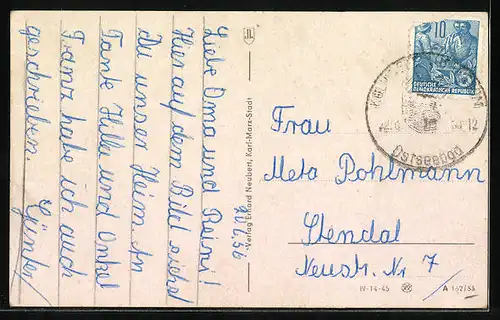 20.7.56
Liebe Oma und Reini!
Hier auf dem Bild siehst
Du unser Heim. An
Tante Hilla und Onkel
Franz habe ich auch
geschrieben.
Günter
Verlag Erhard Neubert, Karl-Marx-Stadt
10
DEUTSCHE
DEMOKRATISCHE REPUBLIK
Ostseebad
Frau
Meta Pohlmann
Stendal
Neustr. Nr 7
IV-14-45
A 162/55